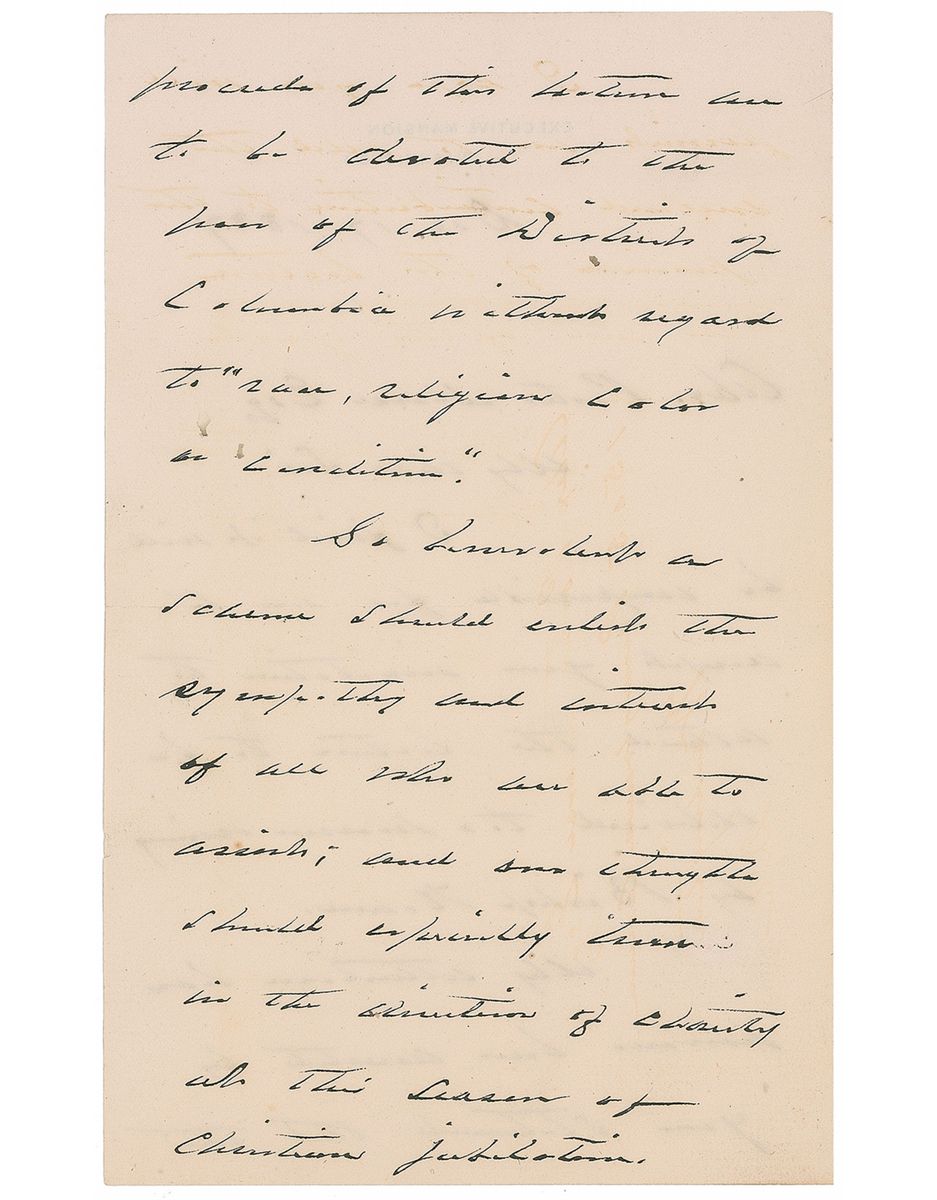 proceeds of this lecture are
to be devoted to the
poor of the District of
Columbia without regard
to "race, religion color
or condition."
So benevolent a
scheme should enlist the
sympathy and interest
of all who are able to
assist; and our thoughts
should especially turn
in the direction of charity
at this season of
Christian jubilation.
EXECUTIVE MANSION